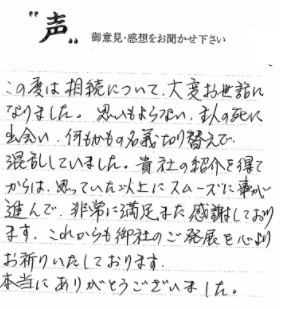 “声” 御意見・感想をお聞かせ下さい
この度は相続について、大変お世話に
なりました。思いもよらない、主人の死に
出会い、何もかもの名義切り替えで
混乱していました。貴社の紹介を得て
からは、思っていた以上にスムーズに事が
進んで、非常に満足、また感謝しており
ます。これからも御社のご発展を心より
お祈りいたしております。
本当にありがとうございました。